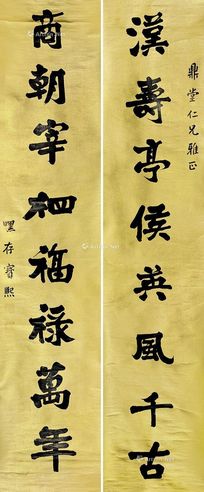 鼎堂仁兄雅正
漢壽亭侯英風千古
商朝宰相福祿萬年
嘿存寶熙